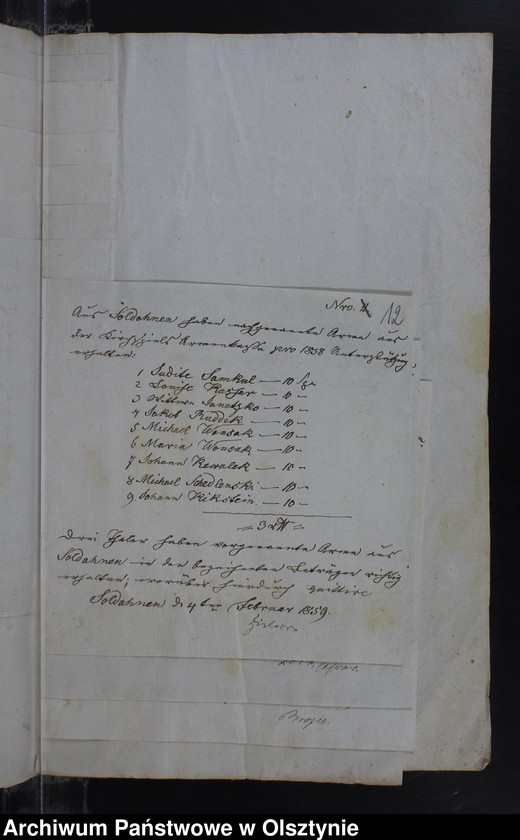 Nro. 11 12
Aus Soldahnen haben nachgenannte Arme aus
der Kirchspiels Armenkasse pro 1858 Unterstützung
erhalten:
1 Judite Samkul — 10 Sgr
2 Louise Kayser — 10 —
3 Wittwe Janetzko — 10 —
4 Jakob Ruddek — 10 —
5 Michael Wonsak — 10 —
6 Maria Wonsak — 10 —
7 Johann Kewalek — 10 —
8 Michael Schedlenski — 10 —
9 Johann Rikstein — 10 —
= 3 =
Drei Thaler haben vorgenannte Arme aus
Soldahnen in den bezeichneten Beträgen richtig
erhalten; worüber hierdurch quittire
Soldahnen d 4ten Februar 1859.
Archiwum Państwowe w Olsztynie